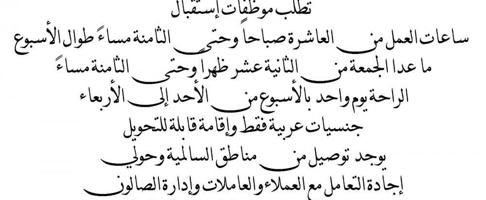 تطلب موظفات إستقبال
ساعات العمل من العاشرة صباحاً وحتى الثامنة مساءً طوال الأسبوع
ما عدا الجمعة من الثانية عشر ظهراً وحتى الثامنة مساءً
الراحة يوم واحد بالأسبوع من الأحد إلى الأربعاء
جنسيات عربية فقط وإقامة قابلة للتحويل
يوجد توصيل من مناطق السالمية وحولي
إجادة التعامل مع العملاء والعاملات وإدارة الصالون